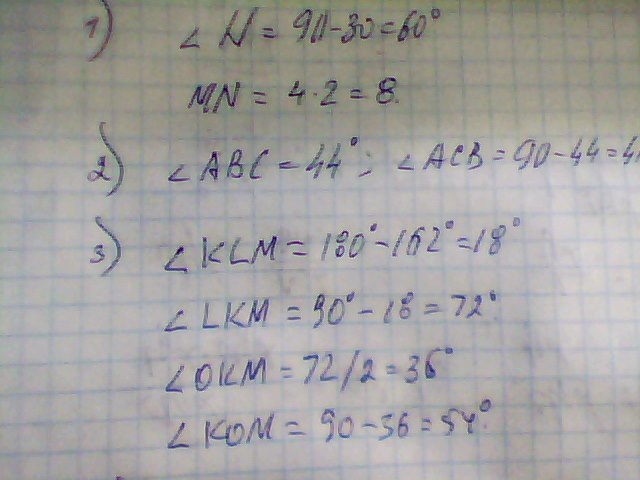 1) ∠N = 90-30=60°
MN = 4·2=8.
2) ∠ABC = 44°; ∠ACB = 90-44=4
3) ∠KLM = 180°-162°=18°
∠LKM = 90°-18=72°
∠OKM = 72/2=36°
∠KOM = 90-36=54°.